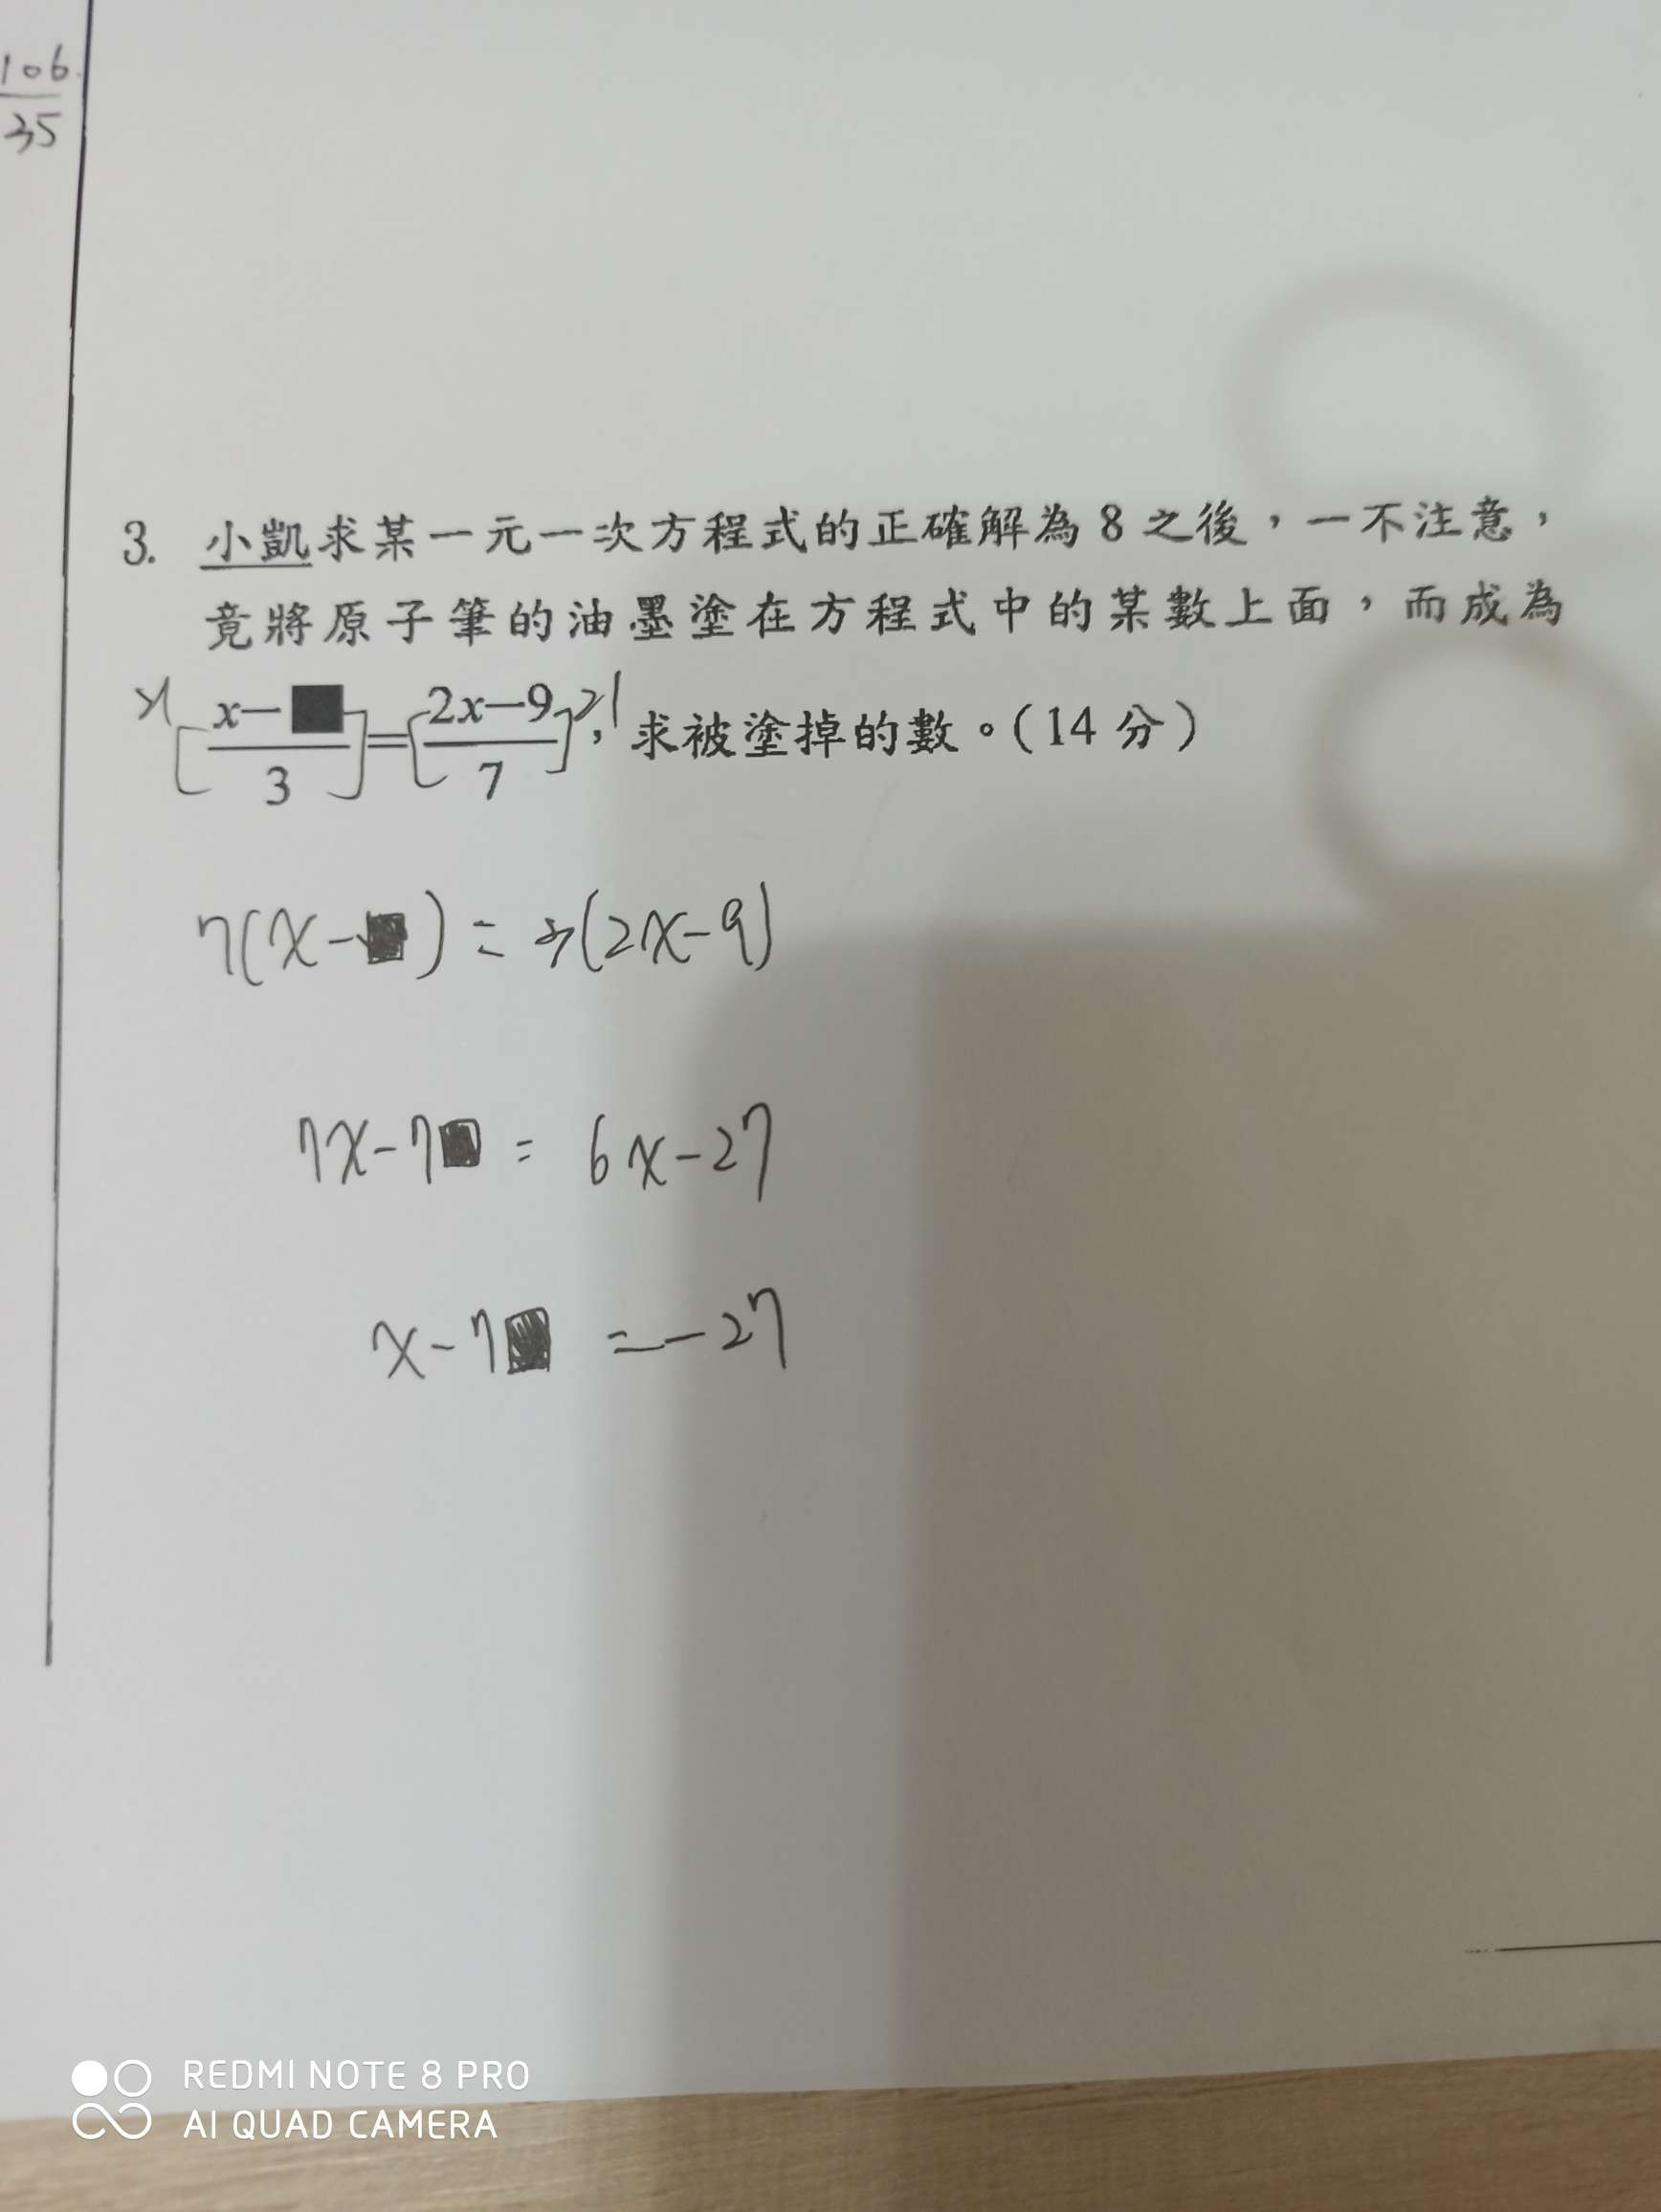 106
35
3. 小凱求某一元一次方程式的正確解為 8 之後，一不注意，
竟將原子筆的油墨塗在方程式中的某數上面，而成為
21[x－■/3]＝[2x－9/7]21，求被塗掉的數。(14 分)
7(x-■) = 3(2x-9)
7x-7■ = 6x-27
x-7■ = -27
REDMI NOTE 8 PRO
AI QUAD CAMERA